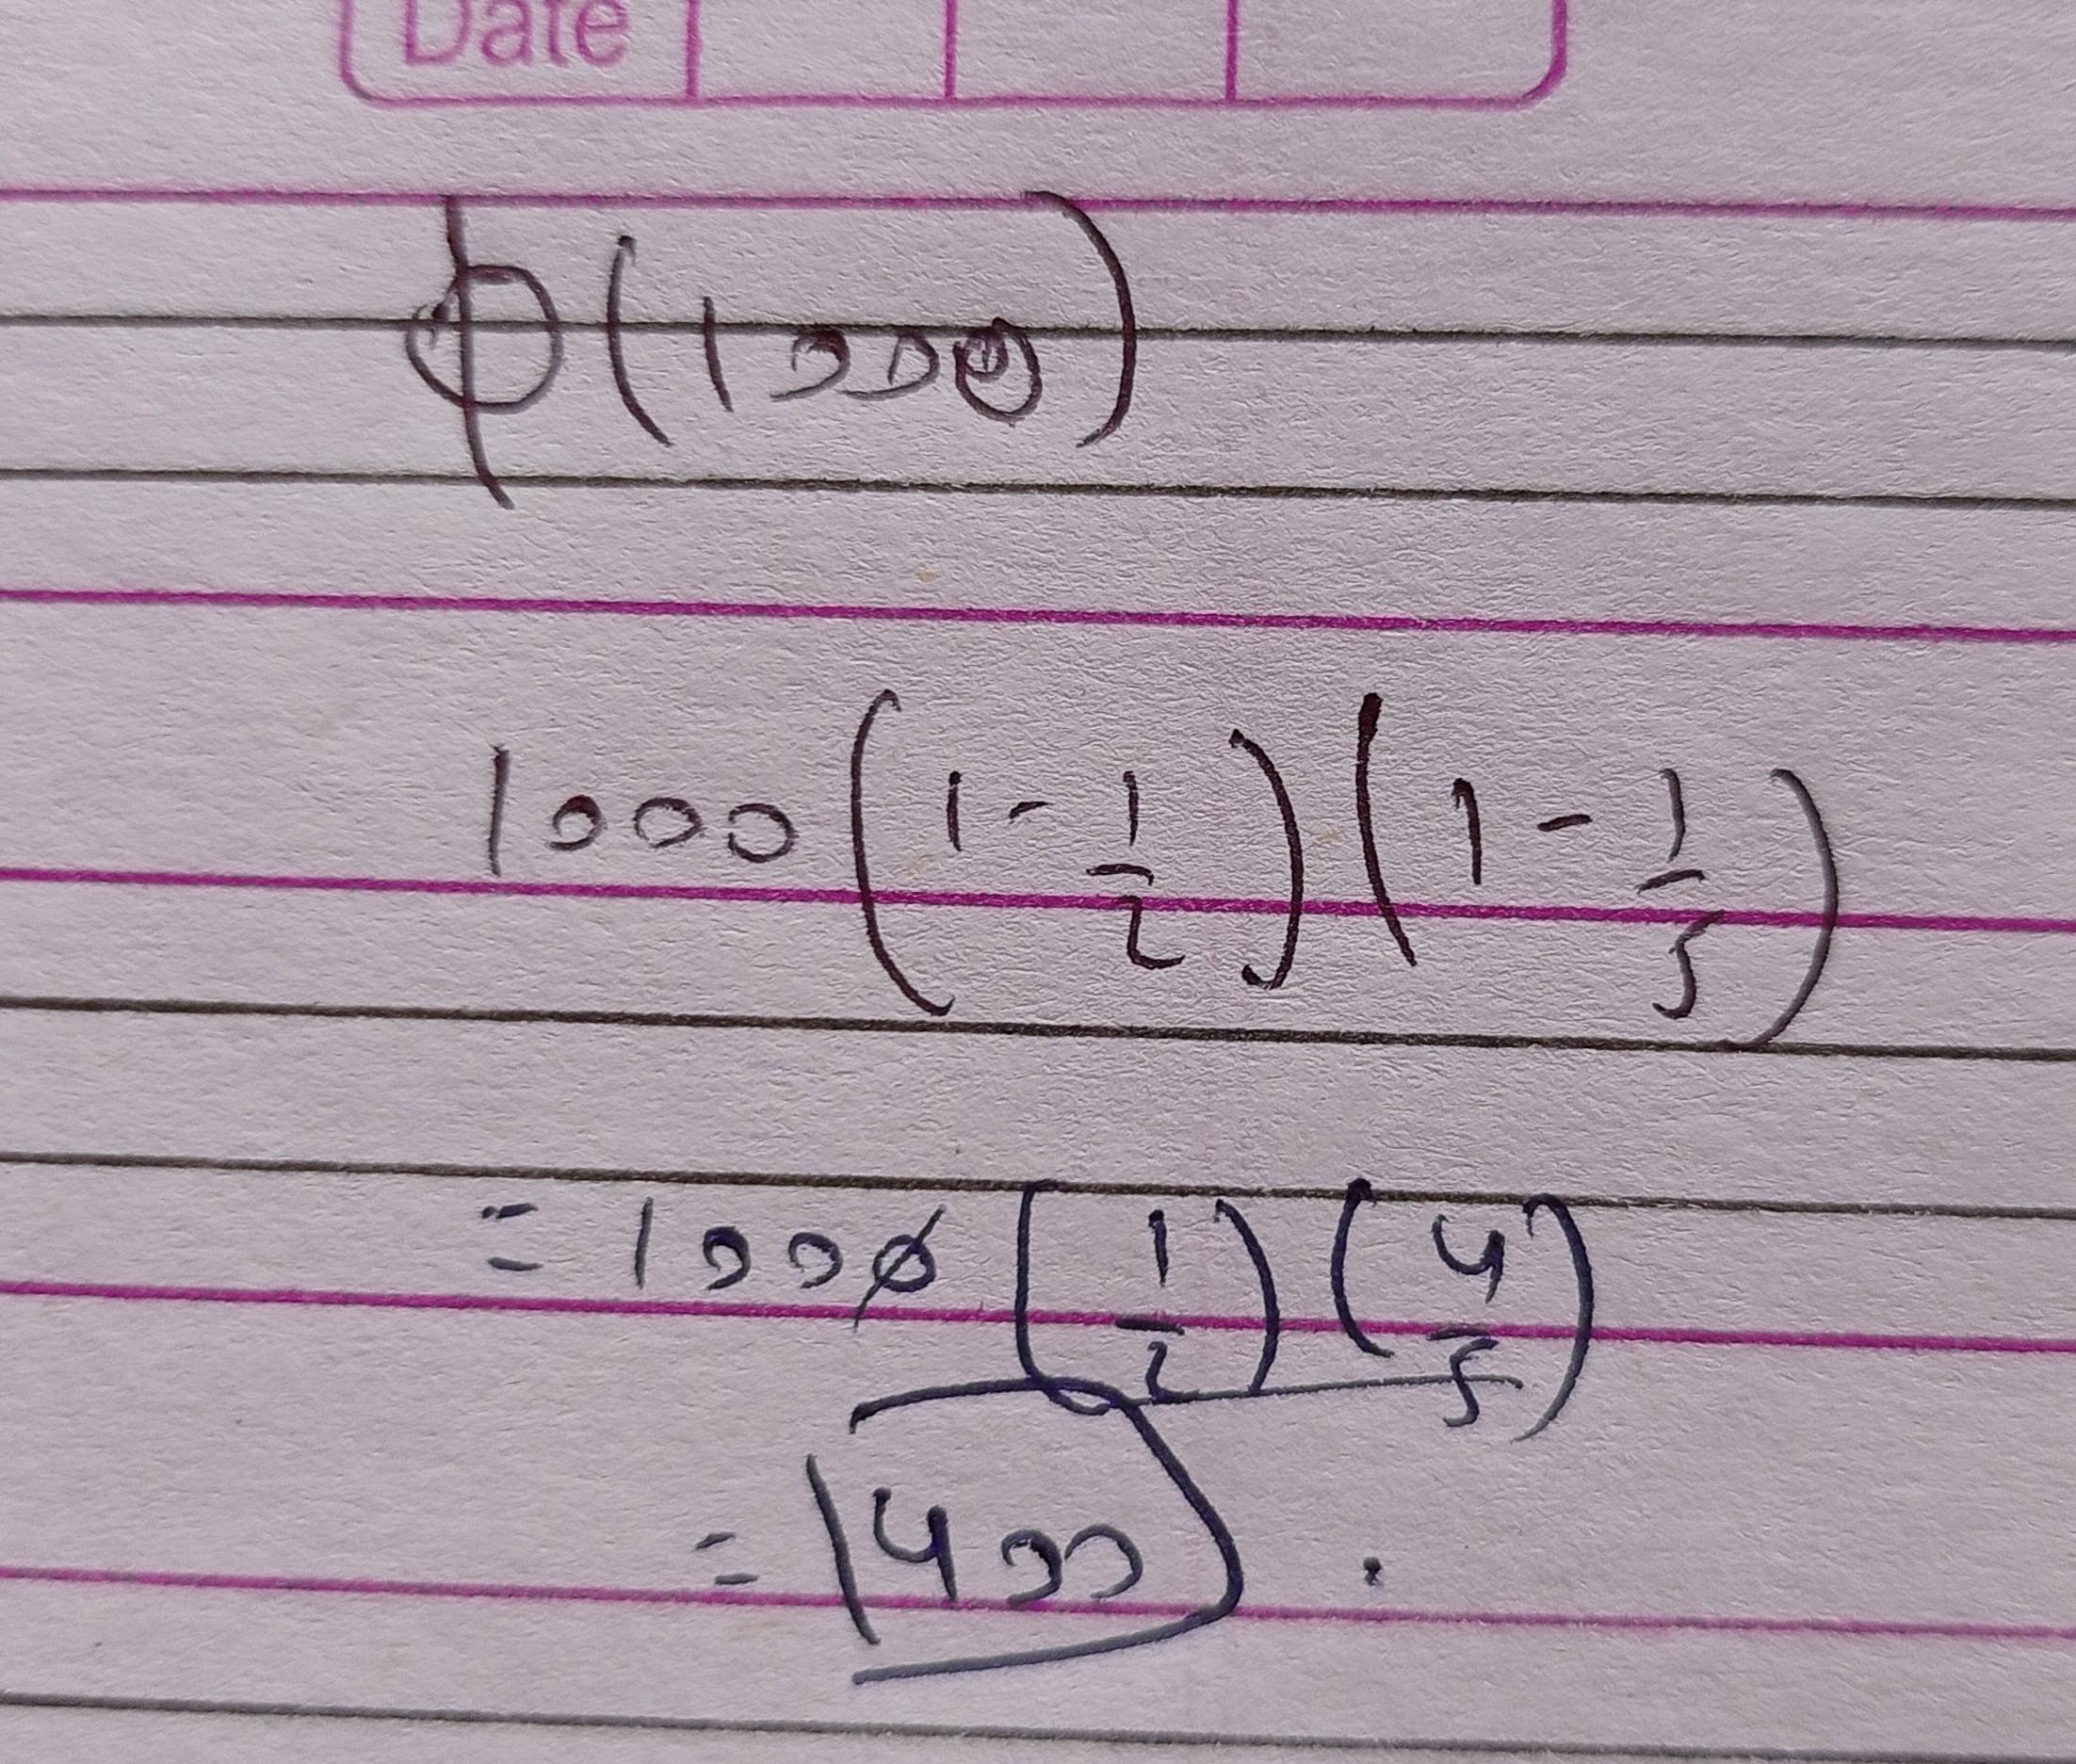 Date
ϕ(1000)
1000(1-1/2)(1-1/5)
=1000(1/2)(4/5)
=400.